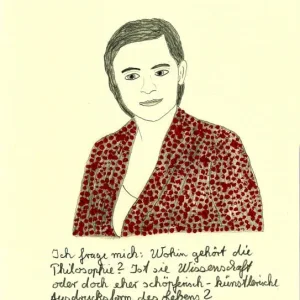 Ich frage mich: Wohin gehört die
Philosophie? Ist sie Wissenschaft
oder doch eher schöpferisch-künstlerische
Ausdrucksform des Lebens?